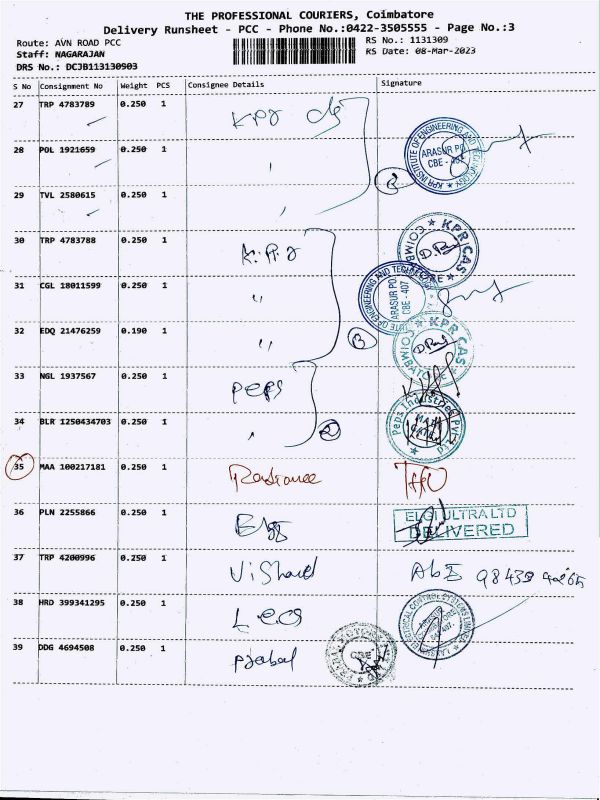 THE PROFESSIONAL COURIERS, Coimbatore
Delivery Runsheet - PCC - Phone No.:0422-3505555 - Page No.:3
Route: AVN ROAD PCC
RS No.: 1131309
Staff: NAGARAJAN
RS Date: 08-Mar-2023
DRS No.: DCJB113130903
S No Consignment No Weight PCS Consignee Details Signature
27 TRP 4783789 0.250 1 KPR
28 POL 1921659 0.250 1 "
KPR INSTITUTE OF ENGINEERING AND TECHNOLOGY
ARASUR PO.
CBE - 407
29 TVL 2580615 0.250 1 "
30 TRP 4783788 0.250 1 K.P.R
KPR CAS COIMBATORE
31 CGL 18011599 0.250 1 "
ARASUR PO.
CBE - 407
32 EDQ 21476259 0.190 1 "
KPR CAS COIMBATORE
33 NGL 1937567 0.250 1 Peps
34 BLR 1250434703 0.250 1 "
Peps Industries Pvt Ltd
35 MAA 100217181 0.250 1 Radiance
36 PLN 2255866 0.250 1 Elgi
ELGI ULTRA LTD
DELIVERED
37 TRP 4200996 0.250 1 Vishard
38 HRD 399341295 0.250 1 Lecs
39 DDG 4694508 0.250 1 Prabal
CBE